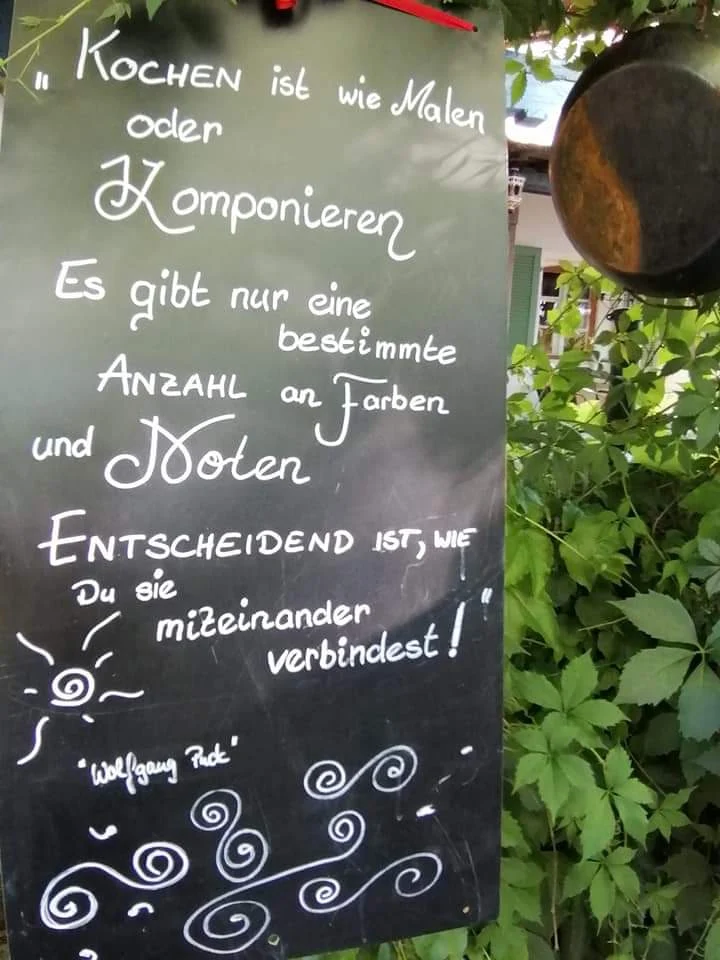 „KOCHEN ist wie Malen
oder
Komponieren
Es gibt nur eine
bestimmte
ANZAHL an Farben
und Noten
ENTSCHEIDEND IST, WIE
Du sie
miteinander
verbindest!"
"Wolfgang Puck"